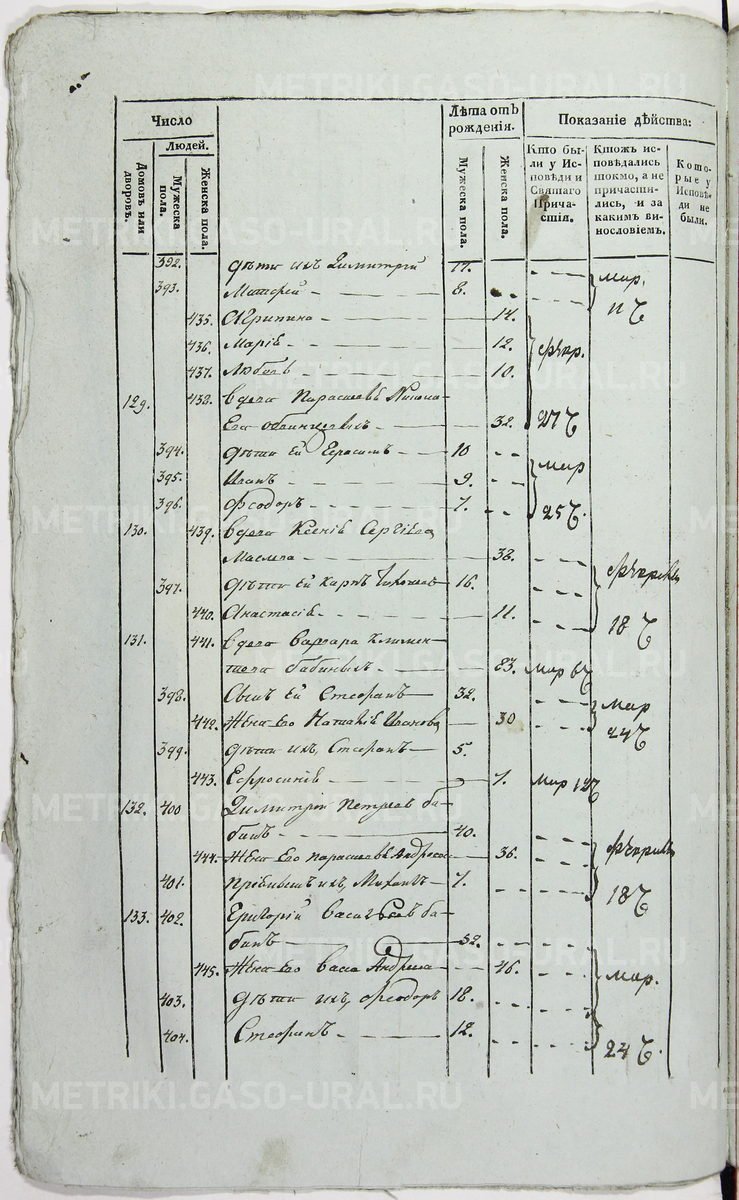 METRIKI.GASO-URAL.RU
Число
Людей.
Домовъ или дворовъ.
Мужеска пола.
Женска пола.
Лѣта отъ рожденія.
Мужеска пола.
Женска пола.
Показаніе дѣйства:
Кто были у Исповѣди и Святаго Причастія.
Ктожъ исповѣдались токмо, а не причастились, и за какимъ винословіемъ.
Которые у Исповѣди не были.
392. дѣти ихъ Димитрій 11.
393. Матфей 8. мар. 11
435. Агрипина 14.
436. Маріѣ 12.
437. Любовь 10.
129. 438. Вдова
32. 27
394. дѣти ей Герасимъ 10
395. Иванъ 9. мар
396. Феодоръ 7. 25
130. 439. Вдова Ксеніѣ Сергіева
38.
397. дѣти ей Карпъ 16.
440. Анастасіѣ 11. 18
131. 441. Вдова Варвара Климен-
това Бабиныхъ 83. мар 6
398. Сынъ ей Стефанъ 32. мар
442. Жена его Наталіѣ Иванова 30 24
399. дѣти ихъ, Стефанъ 5.
443. Ефросиніѣ 7. мар 12
132. 400 Димитрій Петровъ Ба-
бинъ 40.
444. Жена его Парасковья Андреева 36.
401. 7. 18
133. 402. Григорій Васильевъ Ба-
бинъ 52.
445. Жена его Васса Андреева 46. мар.
403. дѣти ихъ, Феодоръ 18.
404. Стефанъ 12. 24